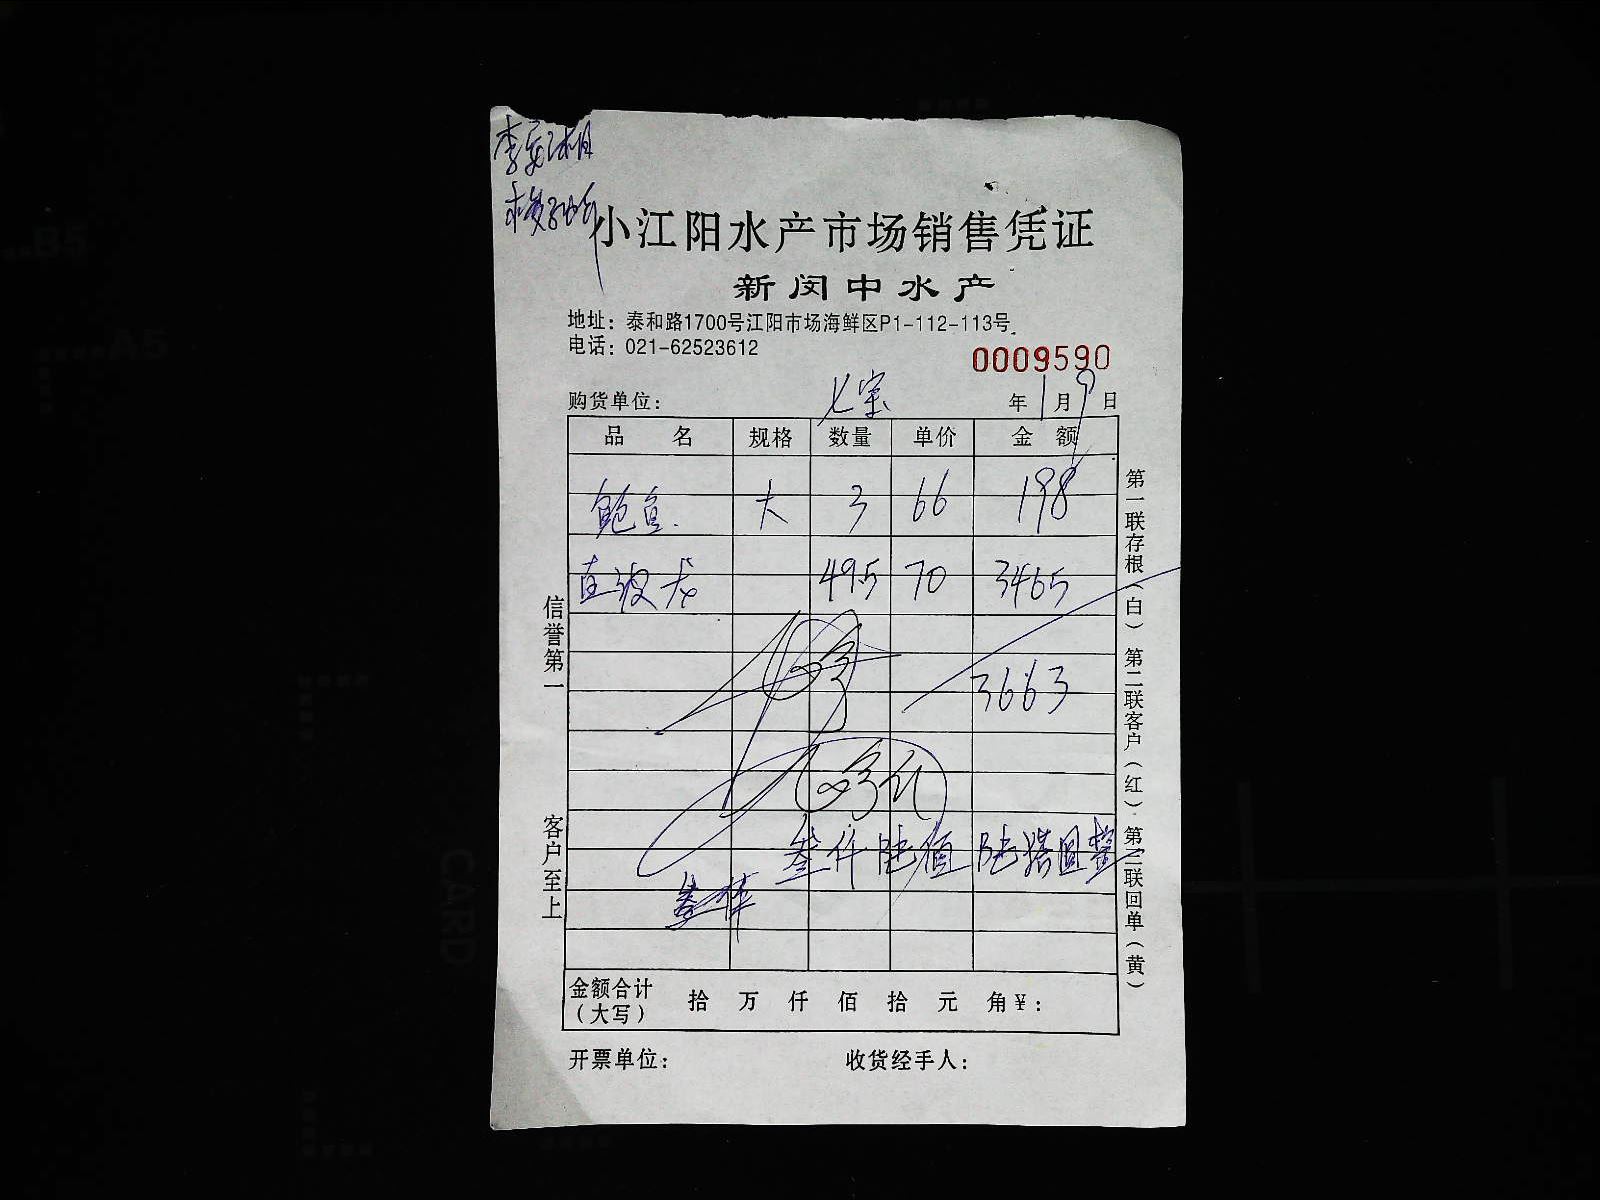 小江阳水产市场销售凭证
新闵中水产
地址：泰和路1700号江阳市场海鲜区P1-112-113号
电话：021-62523612
0009590
购货单位： 七宝 年 1 月 9 日
品 名 规格 数量 单价 金 额
鲍鱼 大 3 66 198
直波龙 49.5 70 3465
3663
叁仟陆佰陆拾 圆整
金额合计（大写） 拾 万 仟 佰 拾 元 角 ¥：
开票单位： 收货经手人：
信誉第一
客户至上
第一联存根（白） 第二联客户（红） 第三联回单（黄）
B5
A5
CARD